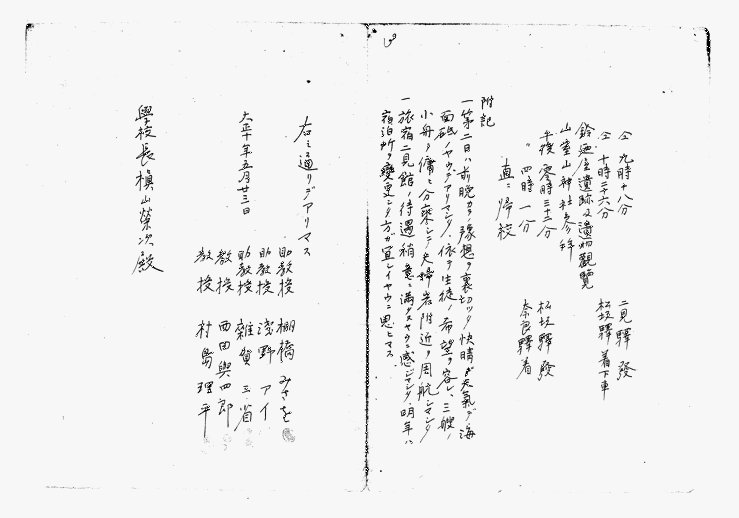 仝 九時十八分 二見驛 發
仝 十時三十六分 松坂驛 着下車
鈴廼屋遺跡及遺物觀覽
山室山神社参拜
午後 零時三十二分 松坂驛 發
〃 四時 一分 奈良驛着
直ニ歸校
附記
一第二日ハ前晩カラノ豫想ヲ裏切ツタ快晴ナ天氣デ海
面砥ノヤウデアリマシタ、依テ生徒ノ希望ヲ容レ、三艘ノ
小舟ヲ傭ヒ分乘シテ夫婦岩附近ヲ周航シマシタ
一旅宿二見館ノ待遇稍意ニ滿タヌヤウニ感シマシタ、明年ハ
宿泊所ヲ變更シタ方ガ宜シイヤウニ思ヒマス、
右之通リデアリマス
大正十年五月廿三日
助教授 棚橋 みさを
助教授 淺野 アイ
助教授 雜賀 三省
教授 西田與四郎
教授 村島 理平
學校長槇山榮次殿